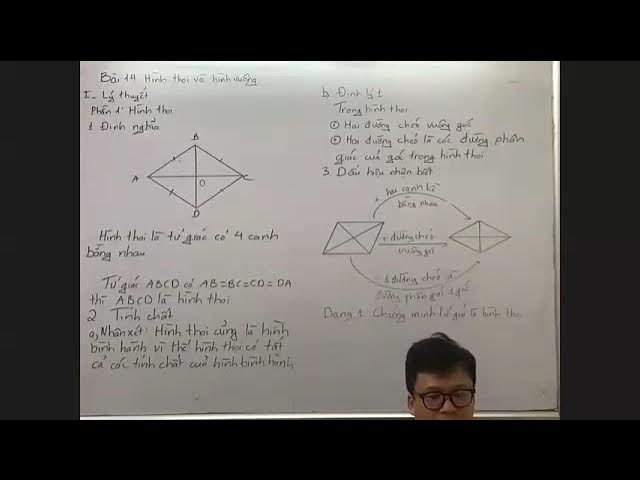 Bài 14 Hình thoi và hình vuông
I_ Lý thuyết
Phần 1: Hình thoi
1 Định nghĩa
B
A
O
C
D
Hình thoi là tứ giác có 4 cạnh
bằng nhau
Tứ giác ABCD có AB=BC=CD=DA
thì ABCD là hình thoi
2 Tính chất
a, Nhận xét: Hình thoi cũng là hình
bình hành vì thế hình thoi có tất
cả các tính chất của hình bình hành
b, Định lý 1
Trong hình thoi
+ Hai đường chéo vuông góc
+ Hai đường chéo là các đường phân
giác của góc trong hình thoi
3. Dấu hiệu nhận biết
+ hai cạnh kề
bằng nhau
+ đường chéo
vuông góc
1 đường chéo là
đường phân giác 1 góc
Dạng 1. Chứng minh tứ giác là hình thoi